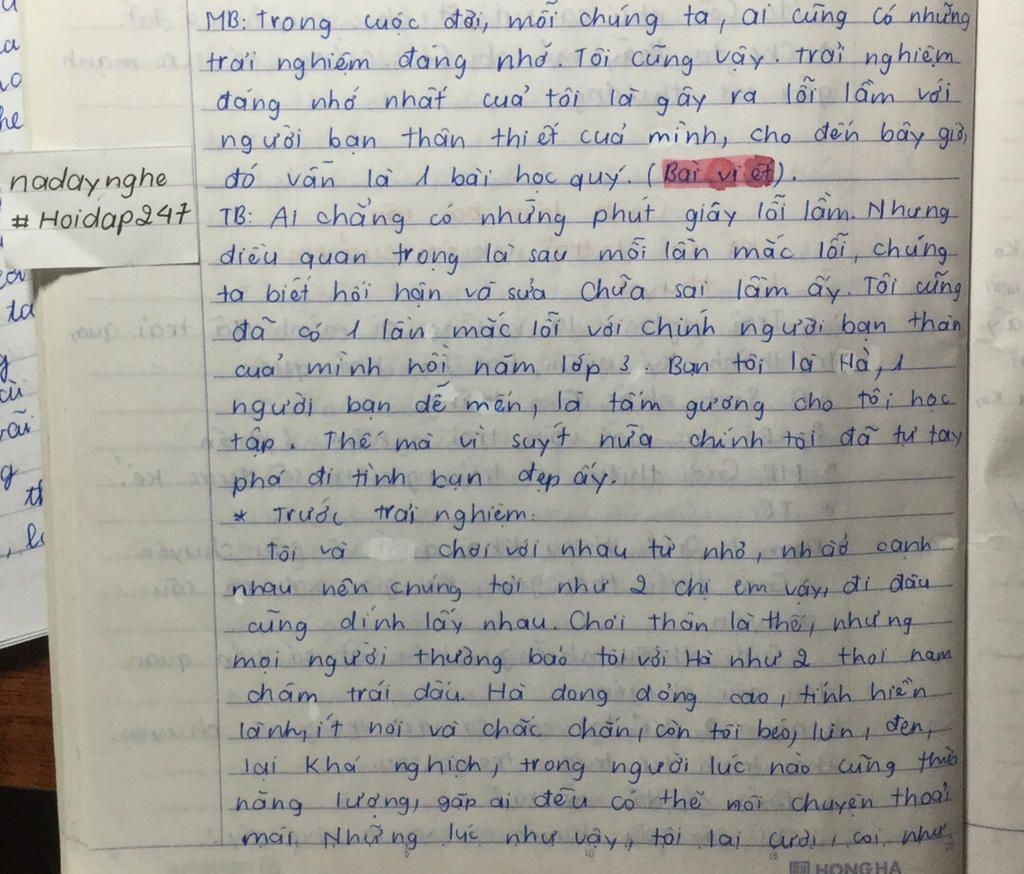 MB: Trong cuộc đời, mỗi chúng ta, ai cũng có những
trải nghiệm đáng nhớ. Tôi cũng vậy. Trải nghiệm
đáng nhớ nhất cuả tôi là gây ra lỗi lầm với
người bạn thân thiết cuả mình, cho đến bây giờ,
đó vẫn là 1 bài học quý. (Bài viết).
TB: Ai chẳng có những phút giây lỗi lầm. Nhưng
điều quan trọng là sau mỗi lần mắc lỗi, chúng
ta biết hối hận và sửa chữa sai lầm ấy. Tôi cũng
đã có 1 lần mắc lỗi với chính người bạn thân
cuả mình hồi năm lớp 3. Bạn tôi là Hà, 1
người bạn dễ mến, là tấm gương cho tôi học
tập. Thế mà vì suýt nữa chính tôi đã tự tay
phá đi tình bạn đẹp ấy.
* Trước trải nghiệm:
Tôi và chơi với nhau từ nhỏ, nhà ở cạnh
nhau nên chúng tôi như 2 chị em vậy, đi đâu
cũng dính lấy nhau. Chơi thân là thế, nhưng
mọi người thường bảo tôi với Hà như 2 thỏi nam
châm trái dấu. Hà dong dỏng cao, tính hiền
lành, ít nói và chắc chắn, còn tôi béo, lùn, đen,
lại khá nghịch, trong người lúc nào cũng thừa
năng lượng, gặp ai đều có thể nói chuyện thoải
mái. Những lúc như vậy, tôi lại cười, coi như
nadaynghe
# Hoidap247
HONG HA